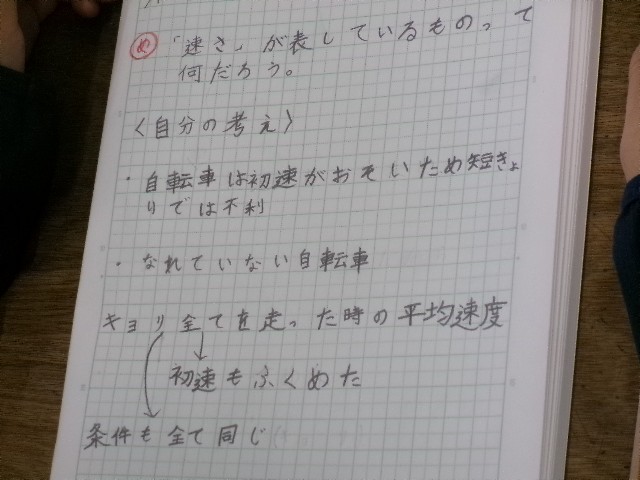 め 「速さ」が表しているものって
何だろう。
〈自分の考え〉
・自転車は初速がおそいため短きょ
りでは不利
・なれていない自転車
キョリ全てを走った時の平均速度
初速もふくめた
条件も全て同じ